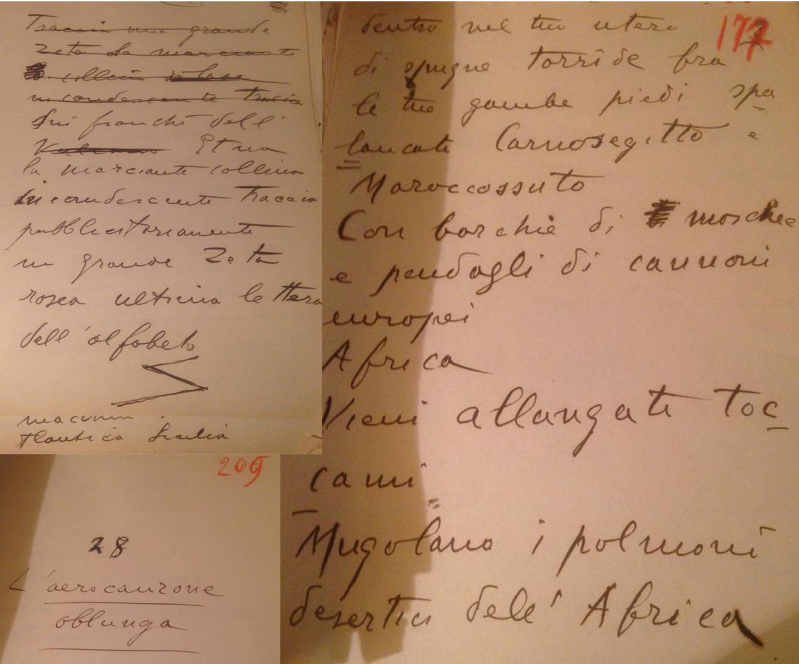 Traccia una grande
Zeta la marciante
collina
incandescente traccia
Sui fianchi dell'
Vulcano Etna
la marciante collina
incandescente Traccia
pubblicitariamente
un grande Zeta
rosea ultima lettera
dell'alfabeto
Sicilia
209
28
L'aerocanzone
oblunga
177
dentro nel tuo utero
di spugne torride fra
le tue gambe piedi spa
lancate Carnosegitto e
Maroccossuto
Con borchie di moschee
e pendagli di cannoni
europei
Africa
Vieni allungati toc
cami
Mugolano i polmoni
desertici dell'Africa